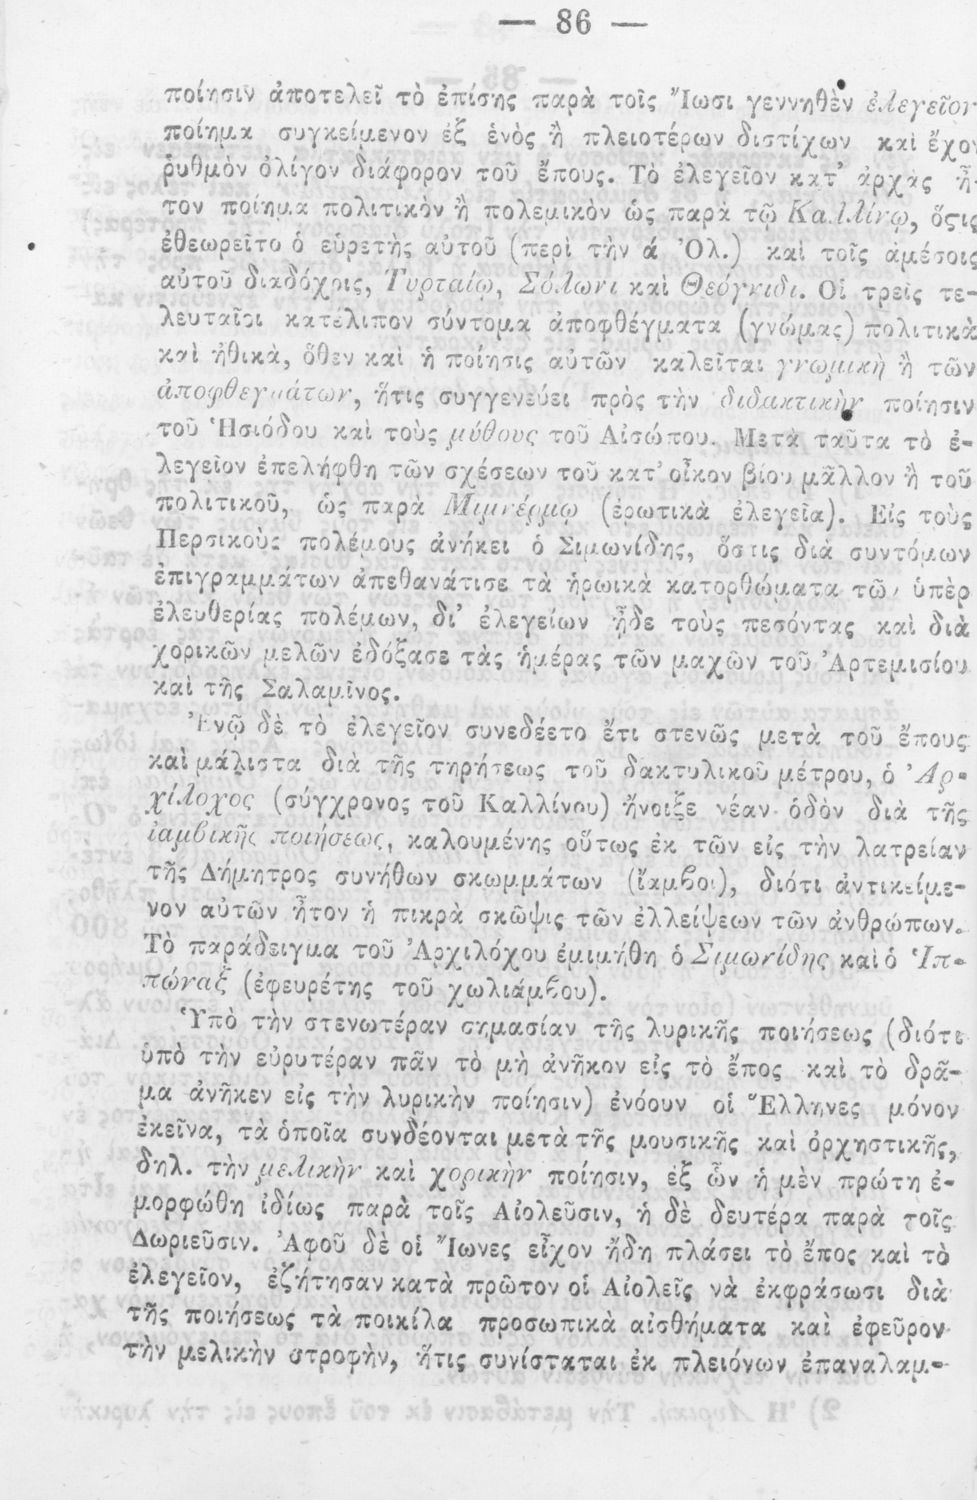 — 86 —
ποίησιν ἀποτελεῖ τὸ ἐπίσης παρὰ τοῖς Ἴωσι γεννηθὲν ἐλεγεῖον
ποίημα συγκείμενον ἐξ ἑνὸς ἢ πλειοτέρων διστίχων καὶ ἔχον
ῥυθμὸν ὀλίγον διάφορον τοῦ ἔπους. Τὸ ἐλεγεῖον κατ’ ἀρχὰς ἦ-
τον ποίημα πολιτικὸν ἢ πολεμικὸν ὡς παρὰ τῷ Καλλίνῳ, ὅςις
ἐθεωρεῖτο ὁ εὑρετὴς αὐτοῦ (περὶ τὴν ά Ὀλ.) καὶ τοῖς ἀμέσοις
αὐτοῦ διαδόχοις, Τυρταίῳ, Σόλωνι καὶ Θεόγνιδι. Οἱ τρεῖς τε-
λευταῖοι κατέλιπον σύντομα ἀποφθέγματα (γνώμας) πολιτικὰ
καὶ ἠθικὰ, ὅθεν καὶ ἡ ποίησις αὐτῶν καλεῖται γνωμικὴ ἢ τῶν
ἀποφθεγμάτων, ἥτις συγγενεύει πρὸς τὴν διδακτικὴν ποίησιν
τοῦ Ἡσιόδου καὶ τοὺς μύθους τοῦ Αἰσώπου. Μετὰ ταῦτα τὸ ἐ-
λεγεῖον ἐπελήφθη τῶν σχέσεων τοῦ κατ’ οἶκον βίου μᾶλλον ἢ τοῦ
πολιτικοῦ, ὡς παρὰ Μιμνέρμῳ (ἐρωτικὰ ἐλεγεῖα). Εἰς τοὺς
Περσικοὺς πολέμους ἀνήκει ὁ Σιμωνίδης, ὅστις διὰ συντόμων
ἐπιγραμμάτων ἀπεθανάτισε τὰ ἡρωικὰ κατορθώματα τῶν ὑπὲρ
ἐλευθερίας πολέμων, δι’ ἐλεγείων ᾖδε τοὺς πεσόντας καὶ διὰ
χορικῶν μελῶν ἐδόξασε τὰς ἡμέρας τῶν μαχῶν τοῦ Ἀρτεμισίου
καὶ τῆς Σαλαμῖνος.
Ἐνῷ δὲ τὸ ἐλεγεῖον συνεδέετο ἔτι στενῶς μετὰ τοῦ ἔπους
καὶ μάλιστα διὰ τῆς τηρήσεως τοῦ δακτυλικοῦ μέτρου, ὁ Ἀρ-
χίλοχος (σύγχρονος τοῦ Καλλίνου) ἤνοιξε νέαν ὁδὸν διὰ τῆς
ἰαμβικῆς ποιήσεως, καλουμένης οὕτως ἐκ τῶν εἰς τὴν λατρείαν
τῆς Δήμητρος συνήθων σκωμμάτων (ἴαμβοι), διότι ἀντικείμε-
νον αὐτῶν ἦτον ἡ πικρὰ σκῶψις τῶν ἐλλείψεων τῶν ἀνθρώπων.
Τὸ παράδειγμα τοῦ Ἀρχιλόχου ἐμιμήθη ὁ Σιμωνίδης καὶ ὁ Ἱπ-
πώναξ (ἐφευρέτης τοῦ χωλιάμβου).
Ὑπὸ τὴν στενωτέραν σημασίαν τῆς λυρικῆς ποιήσεως (διότι
ὑπὸ τὴν εὐρυτέραν πᾶν τὸ μὴ ἀνῆκον εἰς τὸ ἔπος καὶ τὸ δρᾶ-
μα ἀνῆκεν εἰς τὴν λυρικὴν ποίησιν) ἐνόουν οἱ Ἕλληνες μόνον
ἐκεῖνα, τὰ ὁποῖα συνδέονται μετὰ τῆς μουσικῆς καὶ ὀρχηστικῆς,
δηλ. τὴν μελικὴν καὶ χορικὴν ποίησιν, ἐξ ὧν ἡ μὲν πρώτη ἐ-
μορφώθη ἰδίως παρὰ τοῖς Αἰολεῦσιν, ἡ δὲ δευτέρα παρὰ τοῖς
Δωριεῦσιν. Ἀφοῦ δὲ οἱ Ἴωνες εἶχον ἤδη πλάσει τὸ ἔπος καὶ τὸ
ἐλεγεῖον, ἐζήτησαν κατὰ πρῶτον οἱ Αἰολεῖς νὰ ἐκφράσωσι διὰ
τῆς ποιήσεως τὰ ποικίλα προσωπικὰ αἰσθήματα καὶ ἐφεῦρον
τὴν μελικὴν στροφὴν, ἥτις συνίσταται ἐκ πλειόνων ἐπαναλαμ-